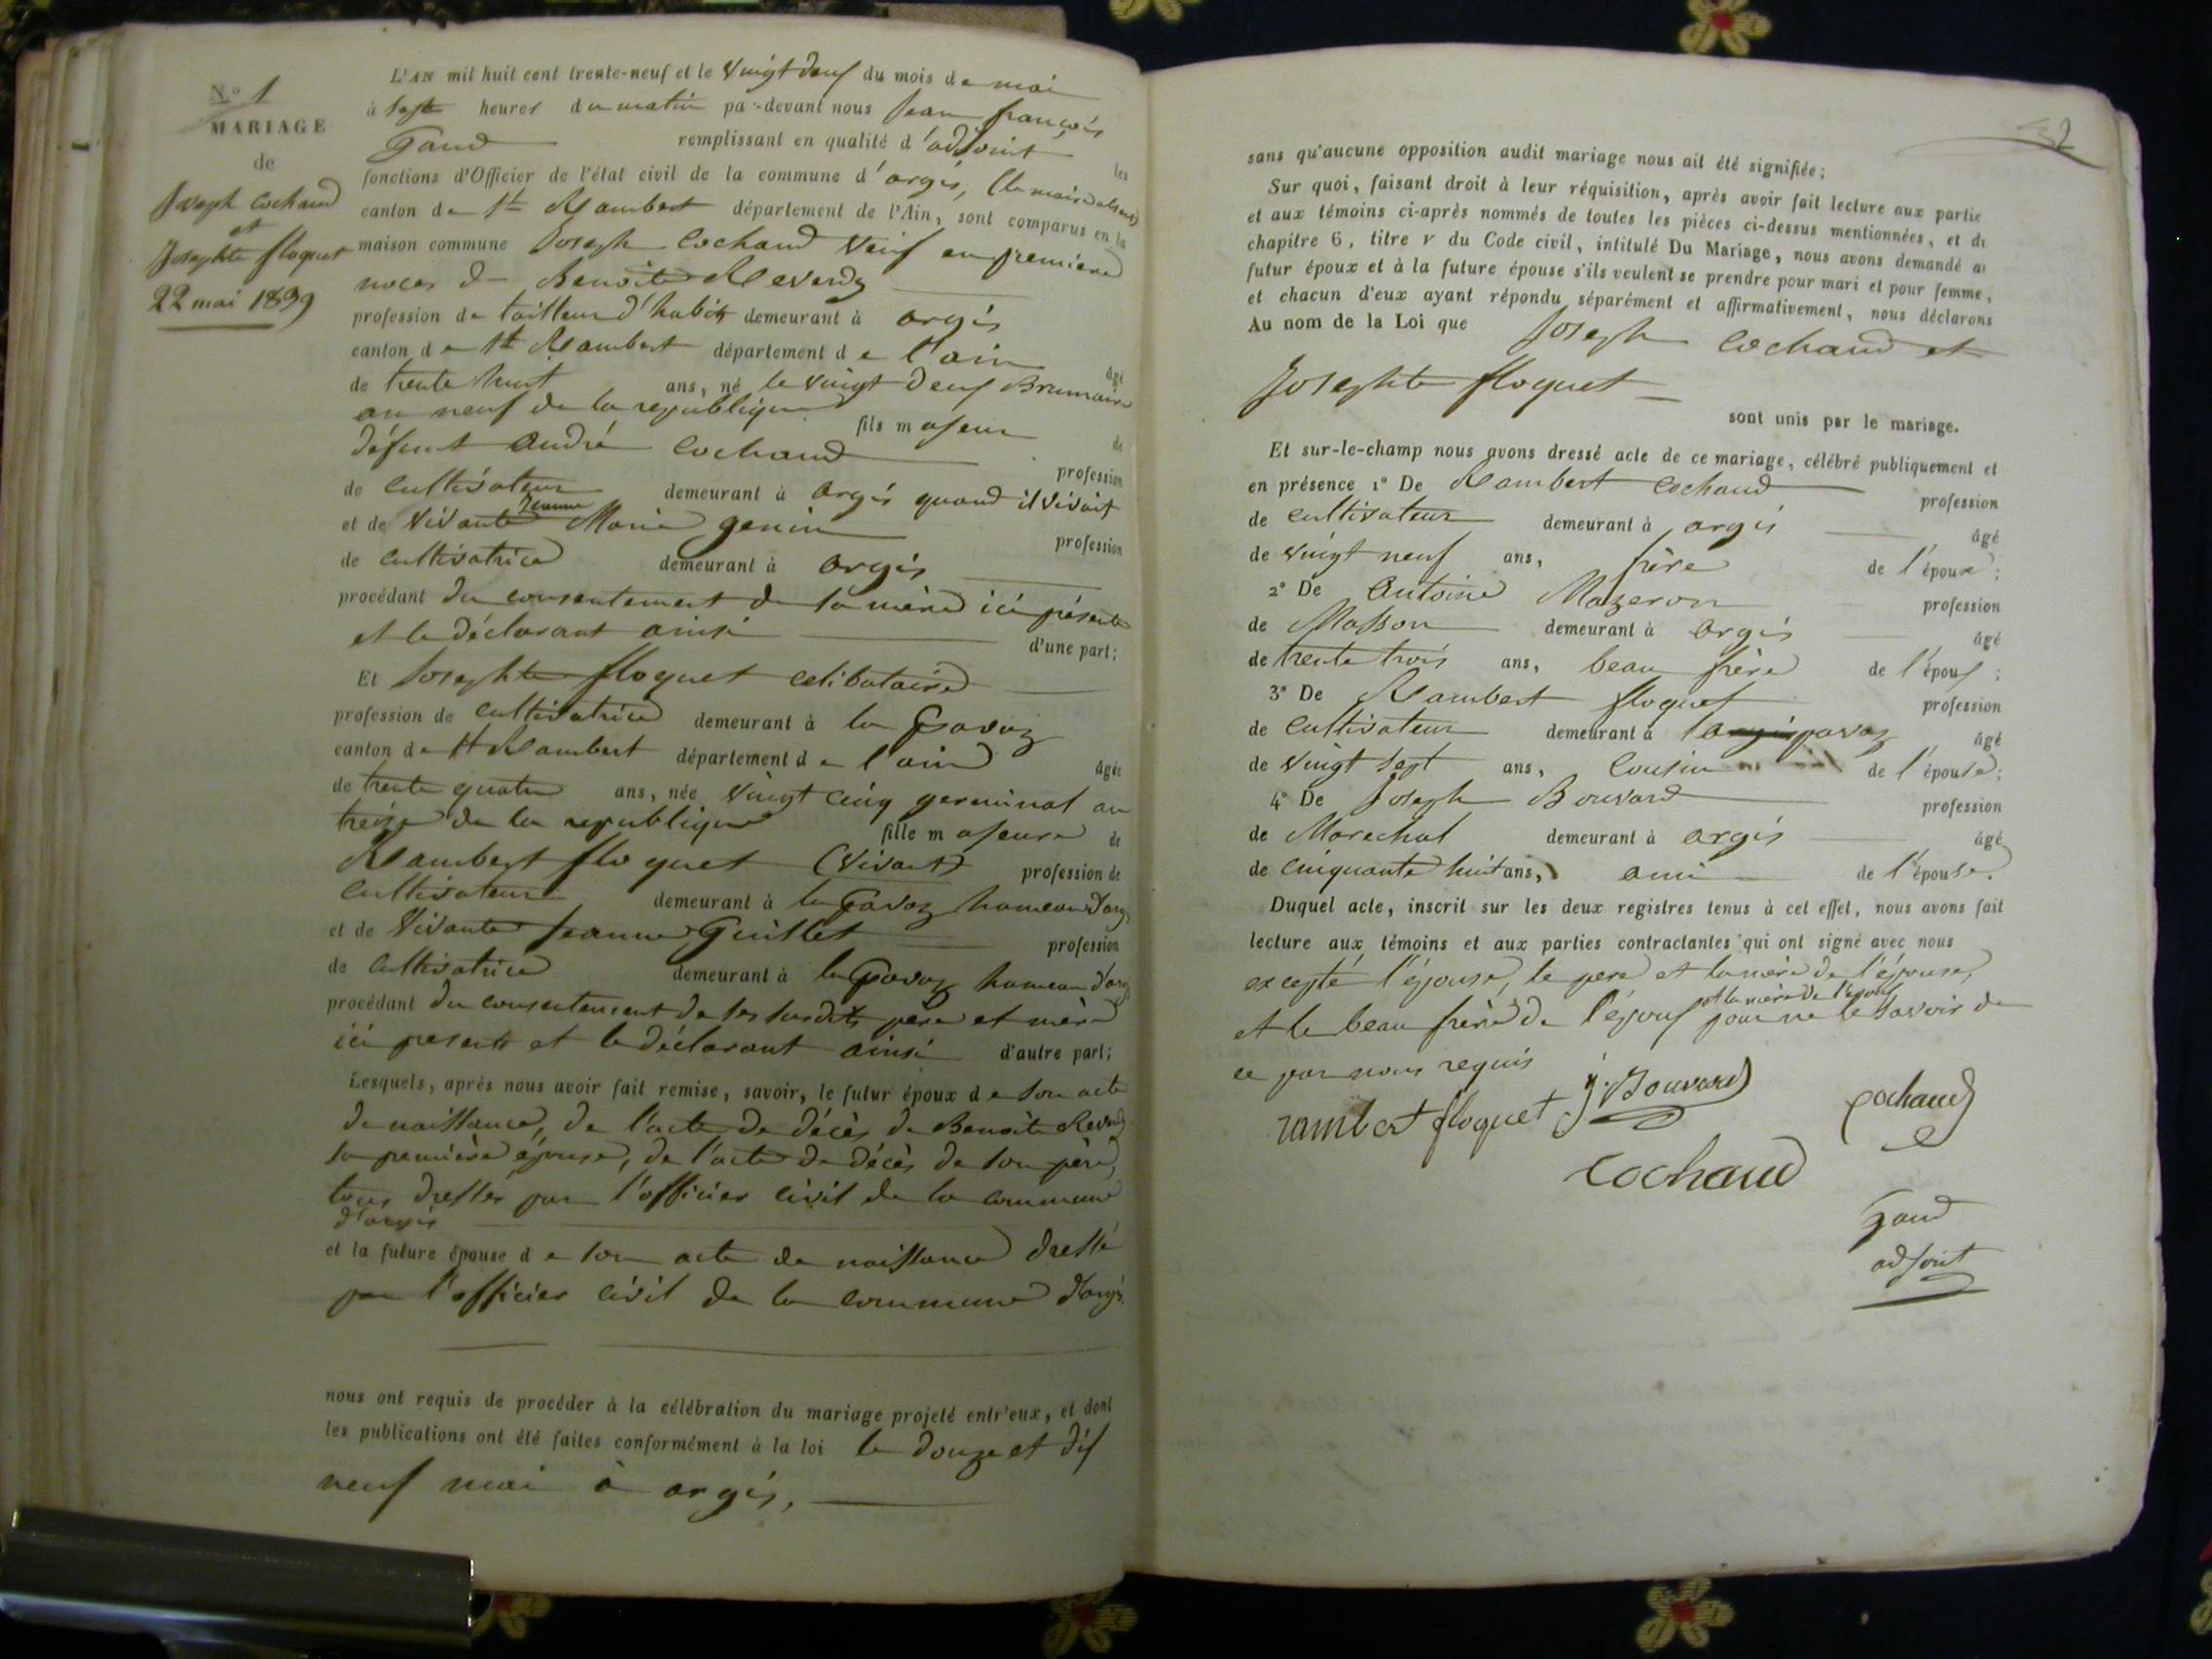 N.º 1
MARIAGE
de
Joseph Cochaud
et
Josephte floquet
22 mai 1839
L'AN mil huit cent trente-neuf et le vingt deux du mois de mai
à sept heures du matin par-devant nous Jean françois
Gaud remplissant en qualité d'adjoint les
fonctions d'Officier de l'état civil de la commune d'argis, (le maire absent)
canton de St Rambert département de l'Ain, sont comparus en la
maison commune Joseph Cochaud veuf en premiere
noces de Benoite Reverdy
profession de tailleur d'habits demeurant à argis
canton de St Rambert département de l'ain âgé
de trente huit ans, né le vingt deux Brumaire
an neuf de la republique fils majeur de
défunt André Cochaud profession
de cultivateur demeurant à Argis quand il vivait
et de vivante Jeanne Marie genin profession
de cultivatrice demeurant à Argis
procédant du consentement de sa mère ici présente
et le déclarant ainsi d'une part;
Et Josephte floquet celibataire
profession de cultivatrice demeurant à la Gavaz
canton de St Rambert département de l'ain âgée
de trente quatre ans, née vingt cinq germinal an
treize de la republique fille majeure de
Rambert floquet (vivant) profession de
cultivateur demeurant à la Gavaz hameau d'arg
et de vivante Jeanne Guillet profession
de cultivatrice demeurant à la Gavaz hameau d'arg
procédant du consentement de ses susdits père et mère
ici presents et le déclarant ainsi d'autre part;
Lesquels, après nous avoir fait remise, savoir, le futur époux de son acte
de naissance, de l'acte de décès de Benoite Reverdy
sa première épouse, de l'acte de décès de son père,
tous dressés par l'officier civil de la commune
d'argis
et la future épouse de son acte de naissance dressé
par l'officier civil de la commune d'argis.
nous ont requis de procéder à la célébration du mariage projeté entr'eux, et dont
les publications ont été faites conformément à la loi le douze et dix
neuf mai à argis,
32
sans qu'aucune opposition audit mariage nous ait été signifiée;
Sur quoi, faisant droit à leur réquisition, après avoir fait lecture aux partie
et aux témoins ci-après nommés de toutes les pièces ci-dessus mentionnées, et du
chapitre 6, titre v du Code civil, intitulé Du Mariage, nous avons demandé au
futur époux et à la future épouse s'ils veulent se prendre pour mari et pour femme,
et chacun d'eux ayant répondu séparément et affirmativement, nous déclarons
Au nom de la Loi que Joseph Cochaud et
Josephte floquet
sont unis par le mariage.
Et sur-le-champ nous avons dressé acte de ce mariage, célébré publiquement et
en présence 1º De Rambert Cochaud profession
de cultivateur demeurant à argis âgé
de vingt neuf ans, frère de l'époux;
2º De Antoine Mazeron profession
de Masson demeurant à Argis âgé
de trente trois ans, beau frère de l'époux;
3º De Rambert floquet profession
de cultivateur demeurant à la gavaz âgé
de vingt sept ans, Cousin de l'épouse;
4º De Joseph Bouvard profession
de Marechal demeurant à argis âgé
de cinquante huit ans, ami de l'épouse.
Duquel acte, inscrit sur les deux registres tenus à cet effet, nous avons fait
lecture aux témoins et aux parties contractantes qui ont signé avec nous
excepté l'épouse, le pere et la mère de l'épouse,
et le beau frère de l'époux et la mère de l'époux pour ne le savoir de
ce par nous requis
rambert floquet j. Bouvard Cochaud
Cochaud
Gaud
adjoint